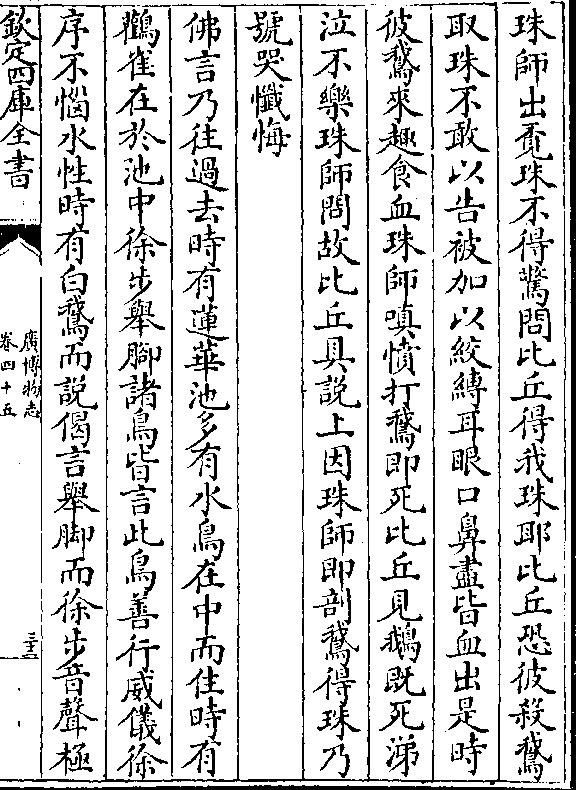 珠師出覔珠不得驚問比丘得我珠耶比丘恐彼殺鵞
取珠不敢以告被加以絞縛耳眼口鼻盡皆血出是時
彼鵞來趣食血珠師嗔憤打鵞即死比丘見鵝既死涕
泣不樂珠師問故比丘具説上因珠師即剖鵞得珠乃
號哭懴悔
佛言乃往過去時有蓮華池多有水鳥在中而住時有
鸛雀在於池中徐步舉腳諸鳥皆言此鳥善行威儀徐
序不惱水性時有白鵞而説偈言舉脚而徐步音聲極
欽定四庫全書
廣博物志
卷四十五
三十二